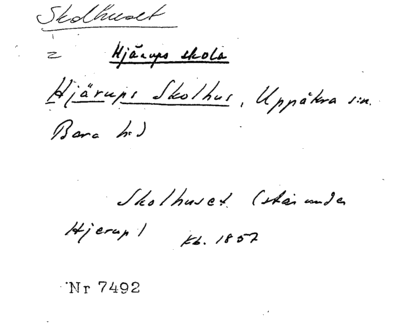 Skolhuset
=
Hjärups skola
Hjärups Skolhus, Uppåkra sn.
Bara hd
Skolhuset (står under
Hjerup)
Kb. 1857
Nr 7492